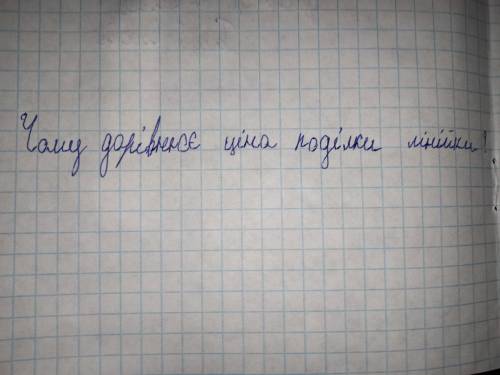 Чому дорівнює ціна поділки лінійки?